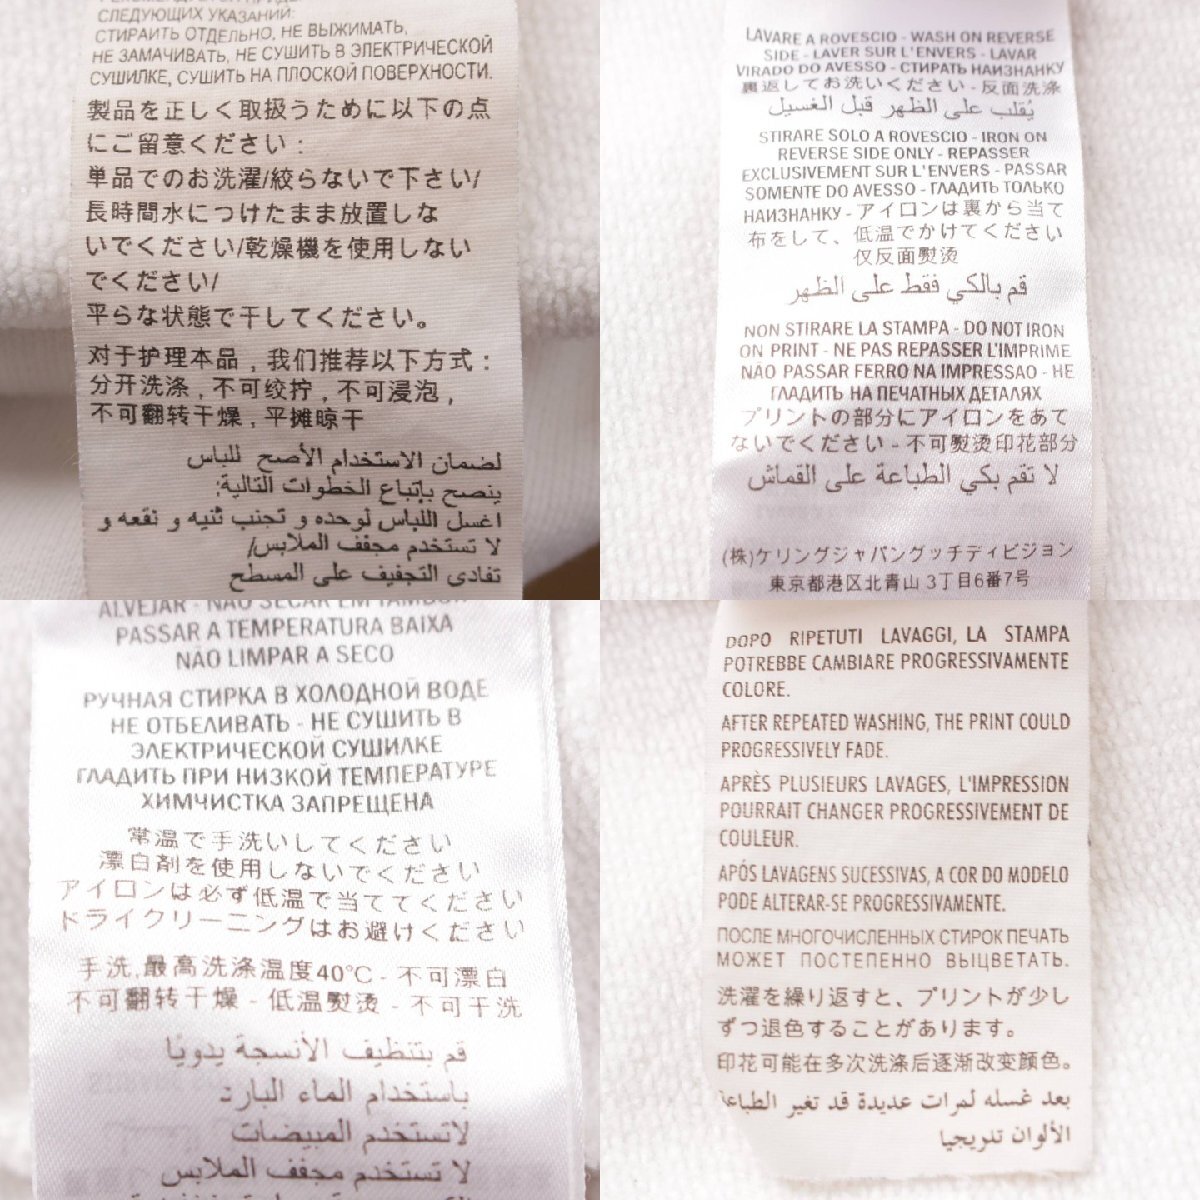 СЛЕДУЮЩИХ УКАЗАНИЙ:
СТИРАИТЬ ОТДЕЛЬНО, НЕ ВЫЖИМАТЬ,
НЕ ЗАМАЧИВАТЬ, НЕ СУШИТЬ В ЭЛЕКТРИЧЕСКОЙ
СУШИЛКЕ, СУШИТЬ НА ПЛОСКОЙ ПОВЕРХНОСТИ.
製品を正しく取扱うために以下の点
にご留意ください:
単品でのお洗濯/絞らないで下さい/
長時間水につけたまま放置しな
いでください/乾燥機を使用しない
でください/
平らな状態で干してください。
对于护理本品,我们推荐以下方式:
分开洗涤,不可绞拧,不可浸泡,
不可翻转干燥,平摊晾干
لضمان الاستخدام الأصح للباس
ينصح بإتباع الخطوات التالية:
اغسل اللباس لوحده و تجنب ثنيه و نقعه و
لا تستخدم مجفف الملابس/
تفادى التجفيف على المسطح
LAVARE A ROVESCIO - WASH ON REVERSE
SIDE - LAVER SUR L'ENVERS - LAVAR
VIRADO DO AVESSO - СТИРАТЬ НАИЗНАНКУ
裏返してお洗いください - 反面洗涤
يُقلب على الظهر قبل الغسيل
STIRARE SOLO A ROVESCIO - IRON ON
REVERSE SIDE ONLY - REPASSER
EXCLUSIVEMENT SUR L'ENVERS - PASSAR
SOMENTE DO AVESSO - ГЛАДИТЬ ТОЛЬКО
НАИЗНАНКУ - アイロンは裏から当て
布をして、低温でかけてください
仅反面熨烫
قم بالكي فقط على الظهر
NON STIRARE LA STAMPA - DO NOT IRON
ON PRINT - NE PAS REPASSER L'IMPRIME
NÃO PASSAR FERRO NA IMPRESSAO - НЕ
ГЛАДИТЬ НА ПЕЧАТНЫХ ДЕТАЛЯХ
プリントの部分にアイロンをあて
ないでください - 不可熨烫印花部分
لا تقم بكي الطباعة على القماش
(株)ケリングジャパングッチディビジョン
東京都港区北青山 3丁目6番7号
ALVEJAR - NÃO SECAR EM TAMBOR
PASSAR A TEMPERATURA BAIXA
NÃO LIMPAR A SECO
РУЧНАЯ СТИРКА В ХОЛОДНОЙ ВОДЕ
НЕ ОТБЕЛИВАТЬ - НЕ СУШИТЬ В
ЭЛЕКТРИЧЕСКОЙ СУШИЛКЕ
ГЛАДИТЬ ПРИ НИЗКОЙ ТЕМПЕРАТУРЕ
ХИМЧИСТКА ЗАПРЕЩЕНА
常温で手洗いしてください
漂白剤を使用しないでください
アイロンは必ず低温で当ててください
ドライクリーニングはお避けください
手洗,最高洗涤温度40℃ - 不可漂白
不可翻转干燥 - 低温熨烫 - 不可干洗
قم بتنظيف الأنسجة يدويًا
باستخدام الماء البارد
لاتستخدم المبيضات
لا تستخدم مجفف الملابس
DOPO RIPETUTI LAVAGGI, LA STAMPA
POTREBBE CAMBIARE PROGRESSIVAMENTE
COLORE.
AFTER REPEATED WASHING, THE PRINT COULD
PROGRESSIVELY FADE.
APRÈS PLUSIEURS LAVAGES, L'IMPRESSION
POURRAIT CHANGER PROGRESSIVEMENT DE
COULEUR.
APÓS LAVAGENS SUCESSIVAS, A COR DO MODELO
PODE ALTERAR-SE PROGRESSIVAMENTE.
ПОСЛЕ МНОГОЧИСЛЕННЫХ СТИРОК ПЕЧАТЬ
МОЖЕТ ПОСТЕПЕННО ВЫЦВЕТАТЬ.
洗濯を繰り返すと、プリントが少し
ずつ退色することがあります。
印花可能在多次洗涤后逐渐改变颜色。
بعد غسله لمرات عديدة قد تغير الطباعة
الألوان تدريجيا